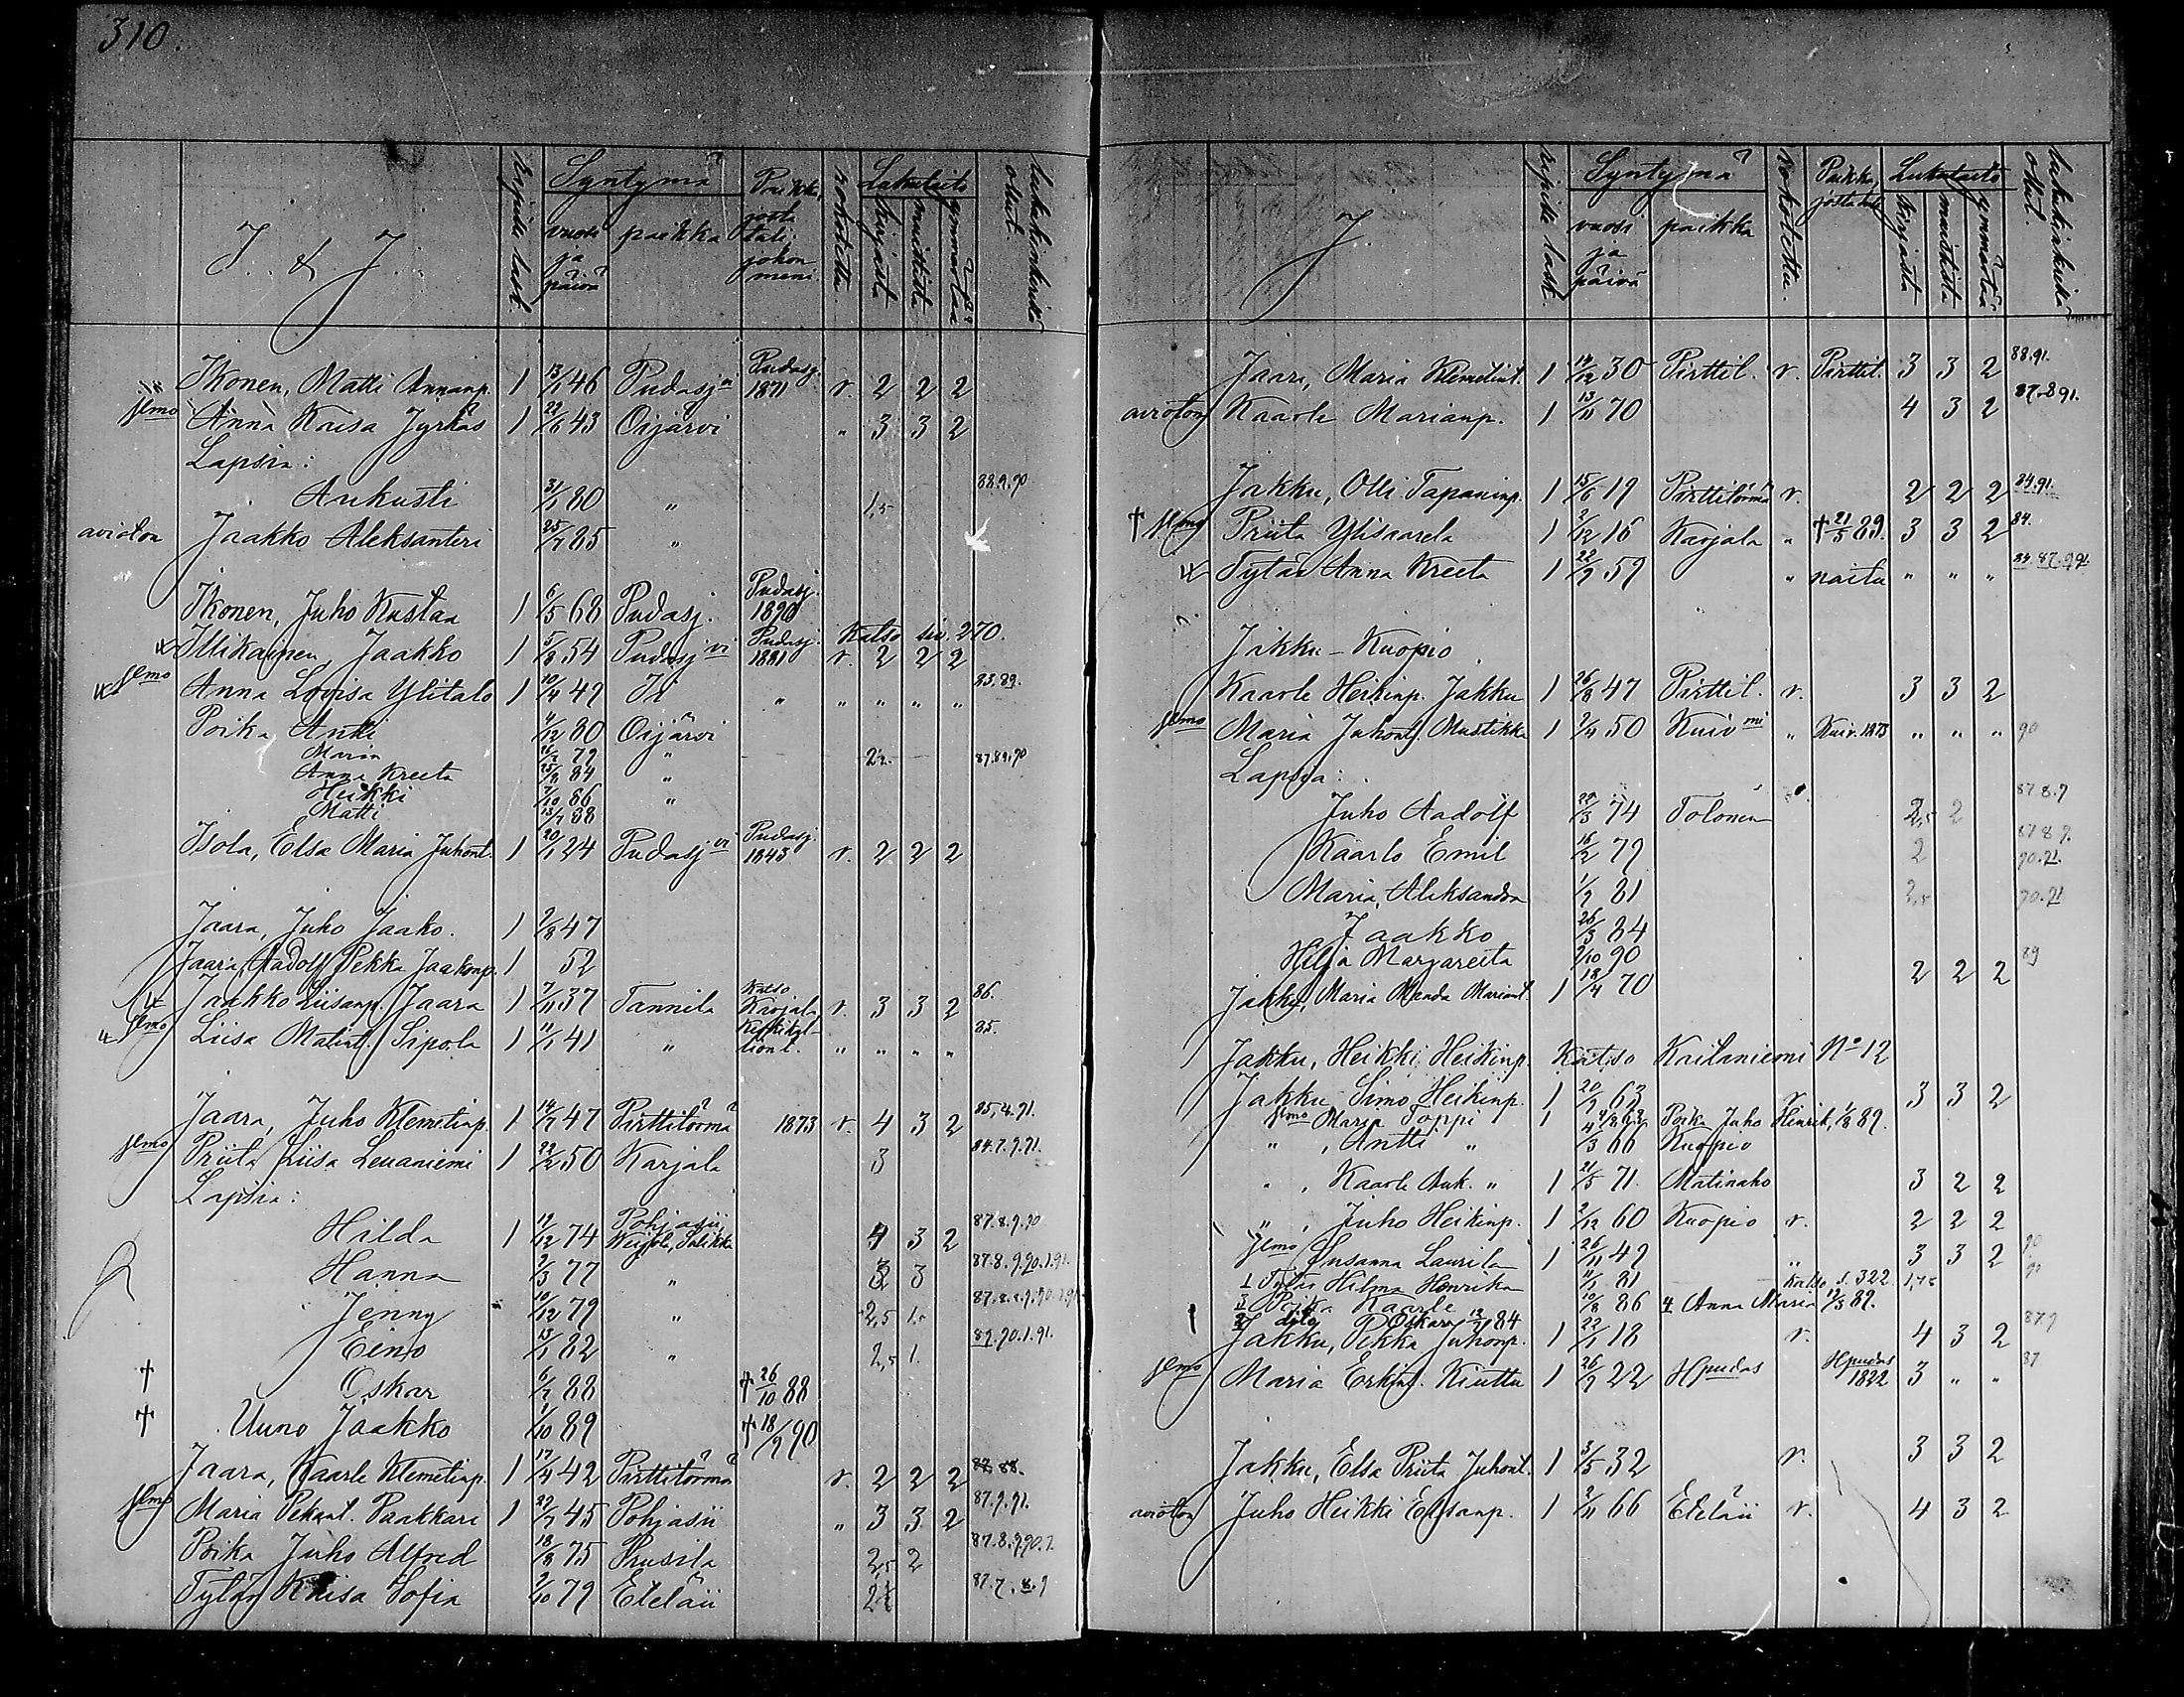 310.
J. & J.
Syntymä
vuosi ja päivä
paikka
Paikka, josta tuli. johon meni.
rokotettu.
Lukutaito
kirjasta
muistista
ymmärtää
lukukinkerillä ollut.
Ikonen, Matti Annanp. 1 13/1 46 Pudasj vi Pudasj. 1871 r. 2 2 2
Anna Kaisa Jyrkäs 1 22/6 43 Oijärvi " 3 3 2
Lapsia:
Aukusti 31/1 80 " 1,5 88.9.90
avioton Jaakko Aleksanteri 25/7 85 "
Ikonen, Juho Kustaa 1 6/5 68 Pudasj. Pudasj. 1890
Katso siv. 270.
Illikainen, Jaakko 1 5/8 54 Pudasj vi Pudasj. 1881 r. 2 2 2
Anna Lovisa Ylitalo 1 10/4 49 Ii " " " " " 83.89.
Poika Antti 4/12 80 Oijärvi
Maria 79 "
Anna Kreeta 25/8 84 "
Heikki 7/10 86 "
Matti 13/7 88
Isola, Elsa Maria Juhont. 1 20/1 24 Pudasj vi Pudasj. 1843 r. 2 2 2
Jaara, Juho Jaako. 1 2/8 47
Jaara, Aadolf Pekka Jaakonp. 1 52
Jaakko Liisanp. Jaara 1 7/11 37 Tannila Katso Karjala r. 3 3 2 86.
Liisa Matint. Sipola 1 11/1 41 " " " " " 85.
Jaara, Juho Klemetinp. 1 14/7 47 Pirttitörmä 1873 r. 4 3 2 85,4.91.
Priita Liisa Leuaniemi 1 22/2 50 Karjala 3 84.7.9.91.
Lapsia:
Hilda 1 19/12 74 Pohjasii 4 3 2 87.8.9.90
Hanna 2/3 77 " 3 3
Jenny 10/12 79 " 2,5
Eino 13/1 82 " 2,5 1. 89.90.1.91.
† Oskar 6/7 88 † 26/10 88
† Uuno Jaakko 1/10 89 † 18/9 90
Jaara, Kaarle Klemetinp. 1 17/4 42 Pirttitörmä r. 2 2 2
Maria Pekant. Paakkari 1 29/7 45 Pohjasii " 3 3 2 87.9.91.
Poika Juho Alfred 18/8 75 2,5 2
Tytär Kaisa Sofia 2/10 79 Eteläii
J.
ripillä lask.
Syntymä
vuosi ja päivä
paikka
Rokotettu.
Paikka josta
Lukutaito
kirjasta
muistista
ymmärtää
lukukinkerillä ollut.
Jaara, Maria Klemetint. 1 14/12 30 Pirttil. r. Pirttil. 3 3 2 88.91.
avioton Kaarle Marianp. 1 13/11 70 4 3 2 87.8.91.
Jakku, Olli Tapaninp. 1 15/6 19 Pirttitörmä r. 2 2 2 84.91.
† Priita Ylisaarela 1 2/12 16 Karjala " † 21/5 89. 3 3 2 84.
Tytär Anna Kreeta 1 22/9 59 " naitu " " "
Jakku - Kuopio
Kaarle Heikinp. Jakku 1 26/8 47 Pirttil. r. 3 3 2
Maria Juhont. Mustikka 1 2/4 50 Kuiv mi " Kuiv. 1873 " " " 90
Lapsia:
Juho Aadolf 29/3 74 Tolonen 2,5 2 87 8.9
Kaarlo Emil 16/2 79 2 87 8 9. 90.91.
Maria Aleksandra 1/9 81 2,5 90.91
Jaakko 26/3 84
Hilja Margareeta 2/10 90
Jakku, Maria Manda Mariant. 1 18/4 70 2 2 2 89
Jakku, Heikki Heikinp. Katso Kailaniemi No 12
Jakku Simo Heikinp. 1 20/9 63 r. 3 3 2
Maria Toppi 1 Poika Juho Henrik, 1/8 89.
" , Antti " 4/3 66 Kuopio
" , Kaarle Auk. " 1 21/5 71 Matinaho 3 2 2
" , Juho Heikinp. 1 2/12 60 Kuopio r. 2 2 2
Susanna Laurila 1 26/11 49 " 3 3 2 90
1 Tytär Hilma Henrika 81 Katso s. 322
3 Poika Kaarle 10/8 86 4 Anna Maria 12/3 89.
2 dito Oskar 84
Jakku, Pekka Juhonp. 1 22/1 18 r. 4 3 2 87.9
Maria Erkint. Kiuttu 1 26/9 22 Hpudas Hpudas 1822 3 " " 87
Jakku, Elsa Priita Juhont. 1 3/5 32 r. 3 3 2
avioton Juho Heikki Elsanp. 1 2/11 66 Eteläii r. 4 3 2